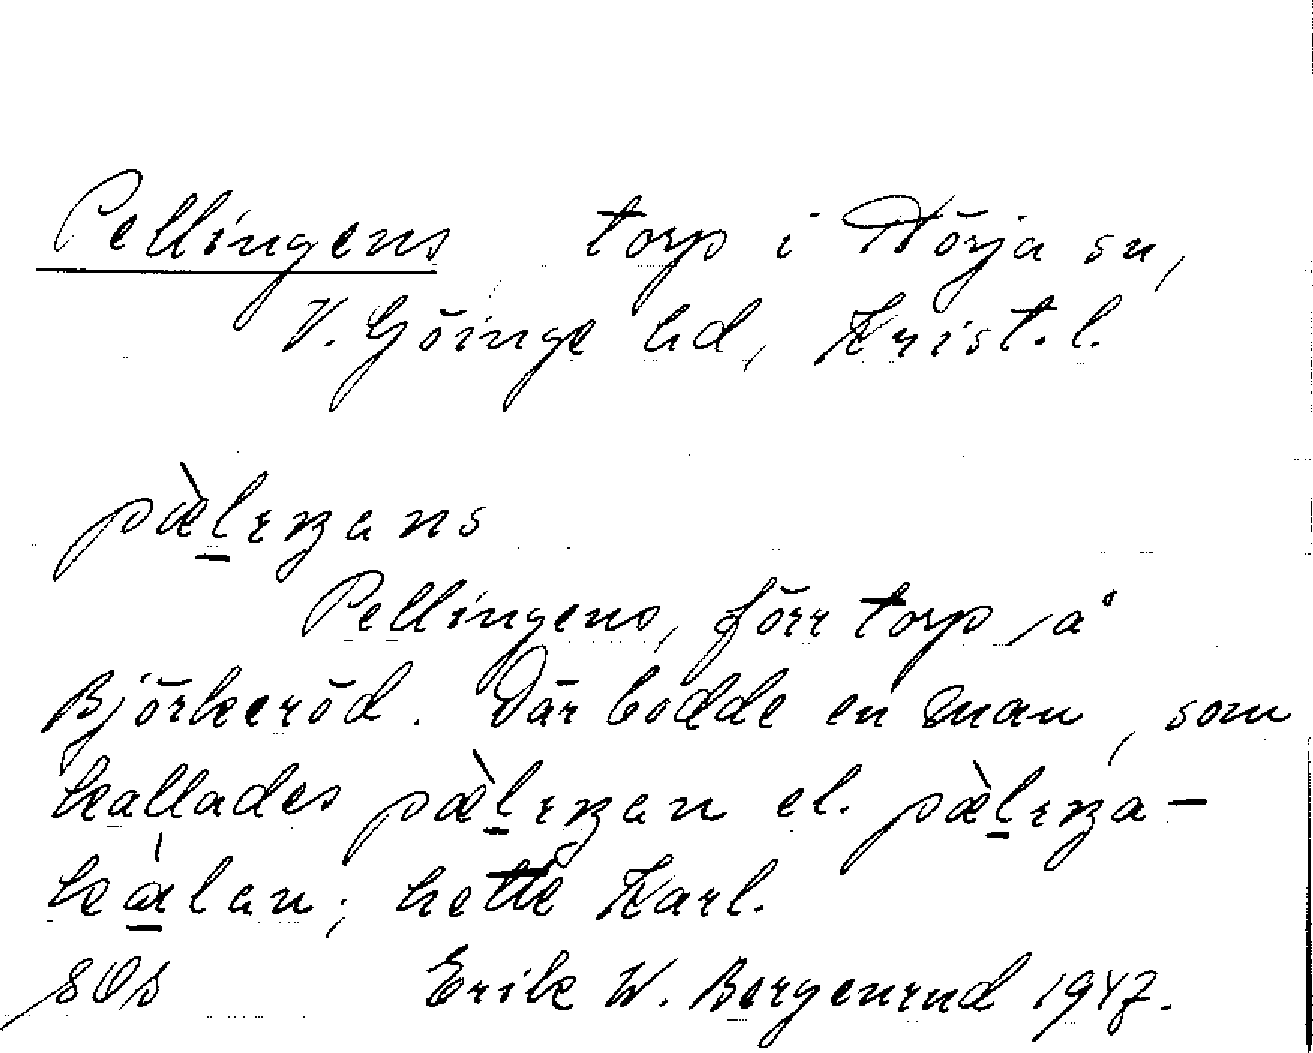 Pellingens torp i Nörja sn,
V. Göinge hd, Krist. l.
pæ̀l̠ɪŋans
Pellingens, förr torp på
Björkeröd. Där bodde en man, som
kallades pæ̀l̠ɪŋan el. pæ̀l̠ɪŋa-
kà̠lan; hette Karl.
Erik W. Bergenrud 1947.